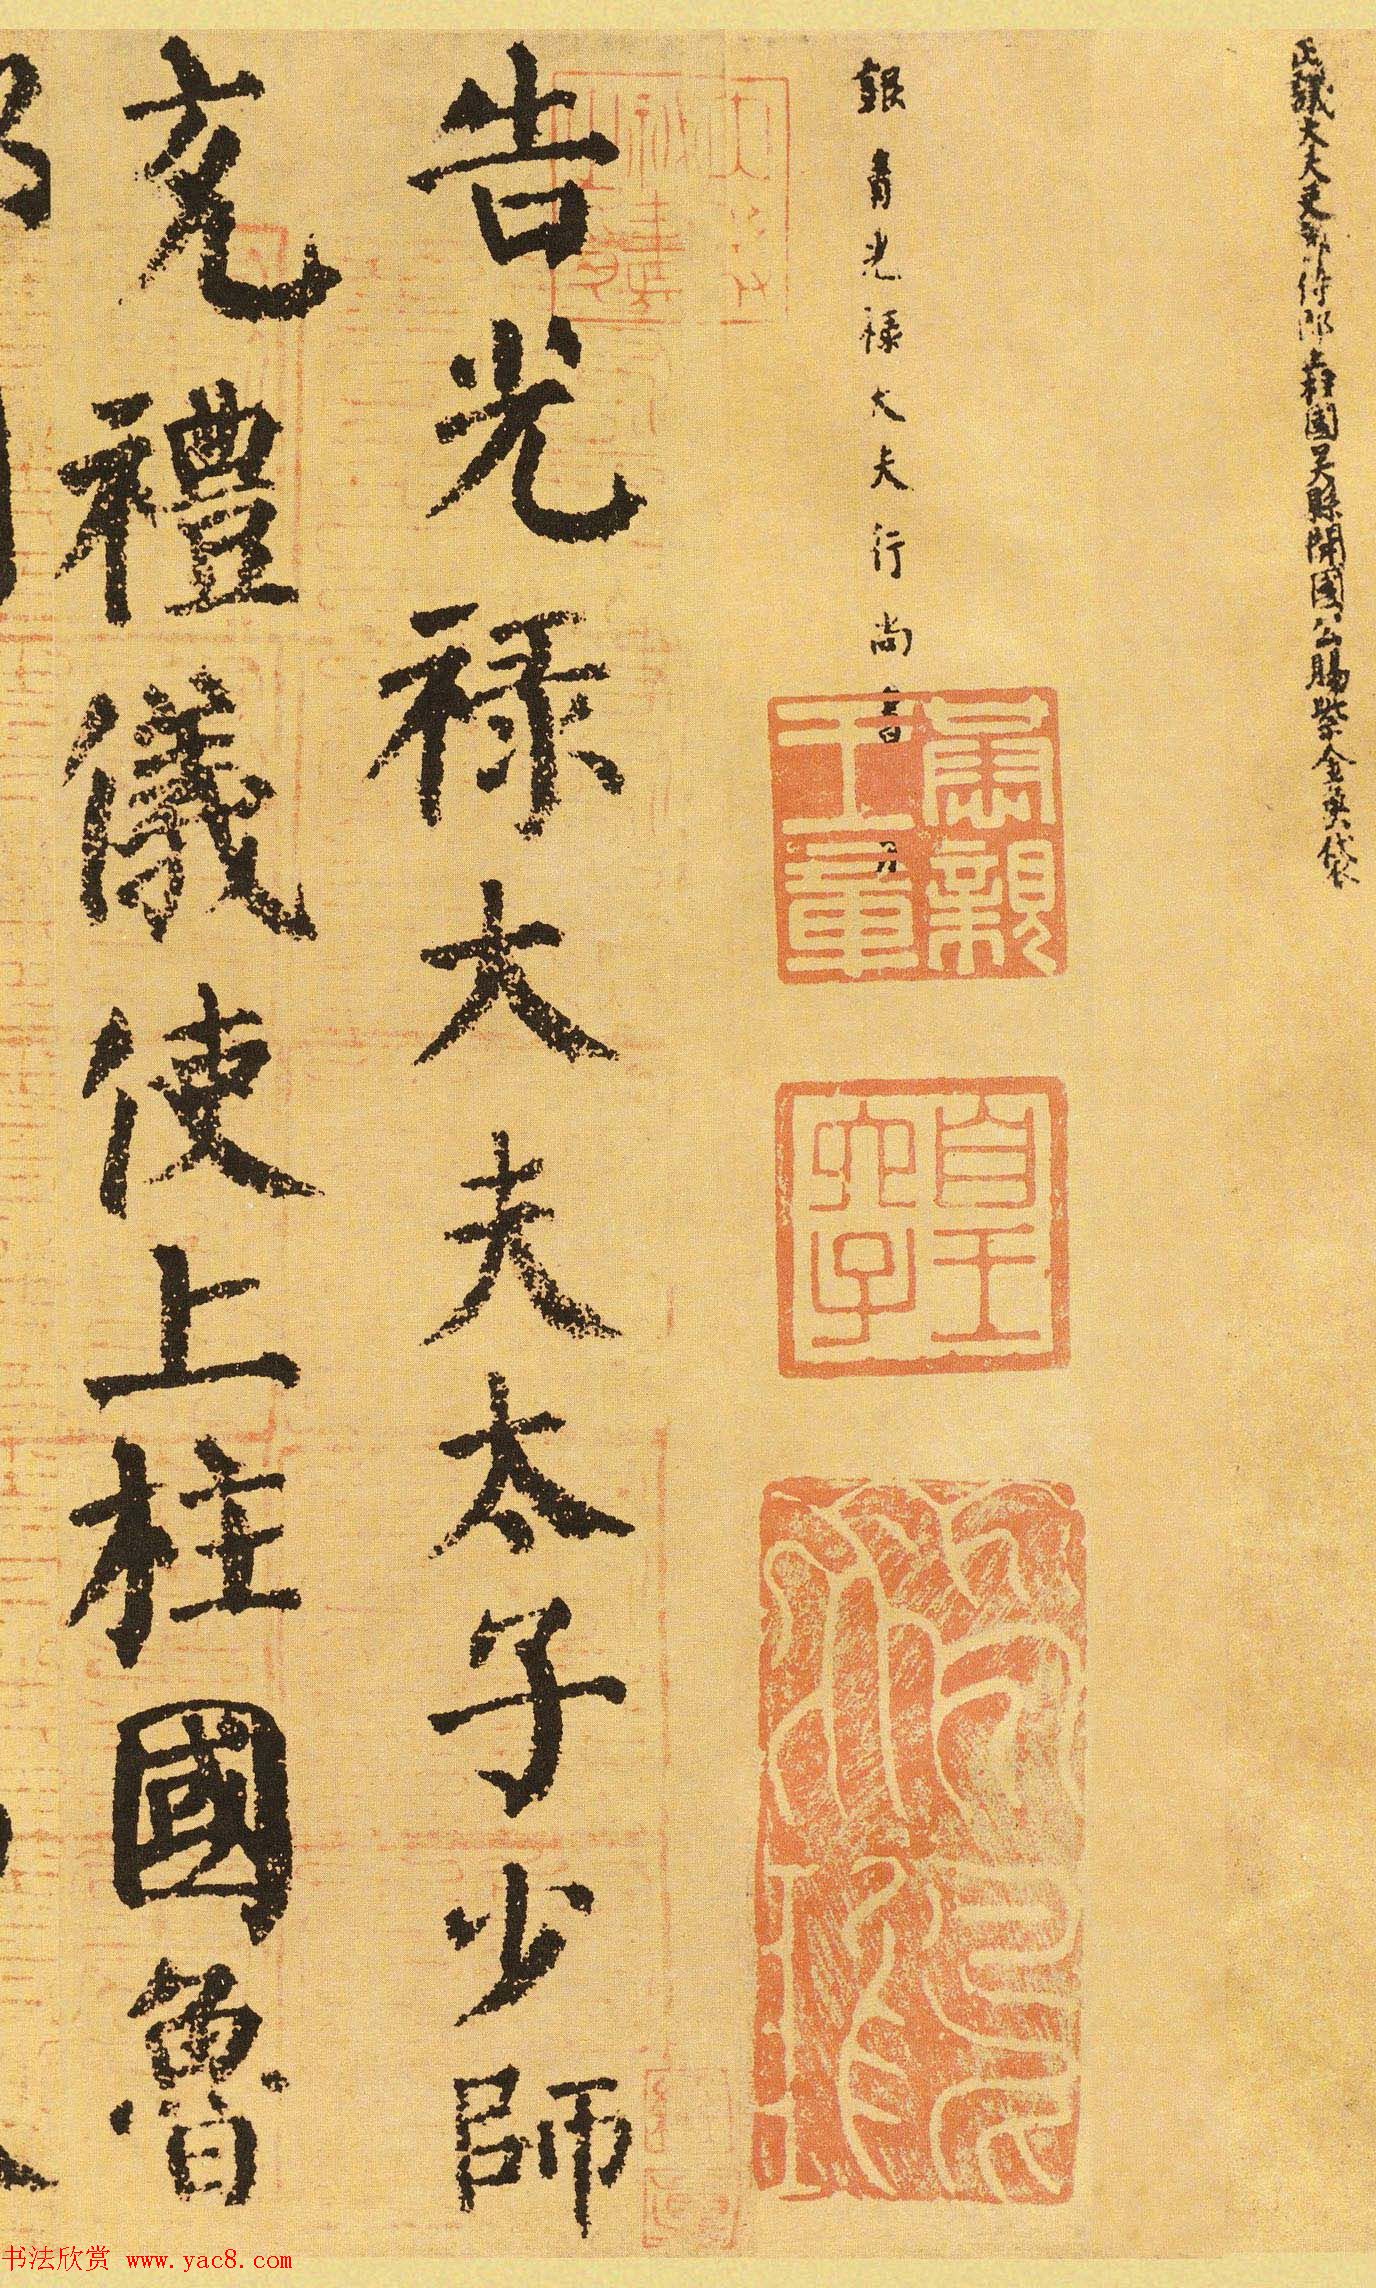 正議大夫吏部侍郎上柱國吳縣開國公賜紫金魚袋
銀青光祿大夫行尚書
肅親王章
皇六子
告光祿大夫太子少師
充禮儀使上柱國魯
书法欣赏 www.yac8.com